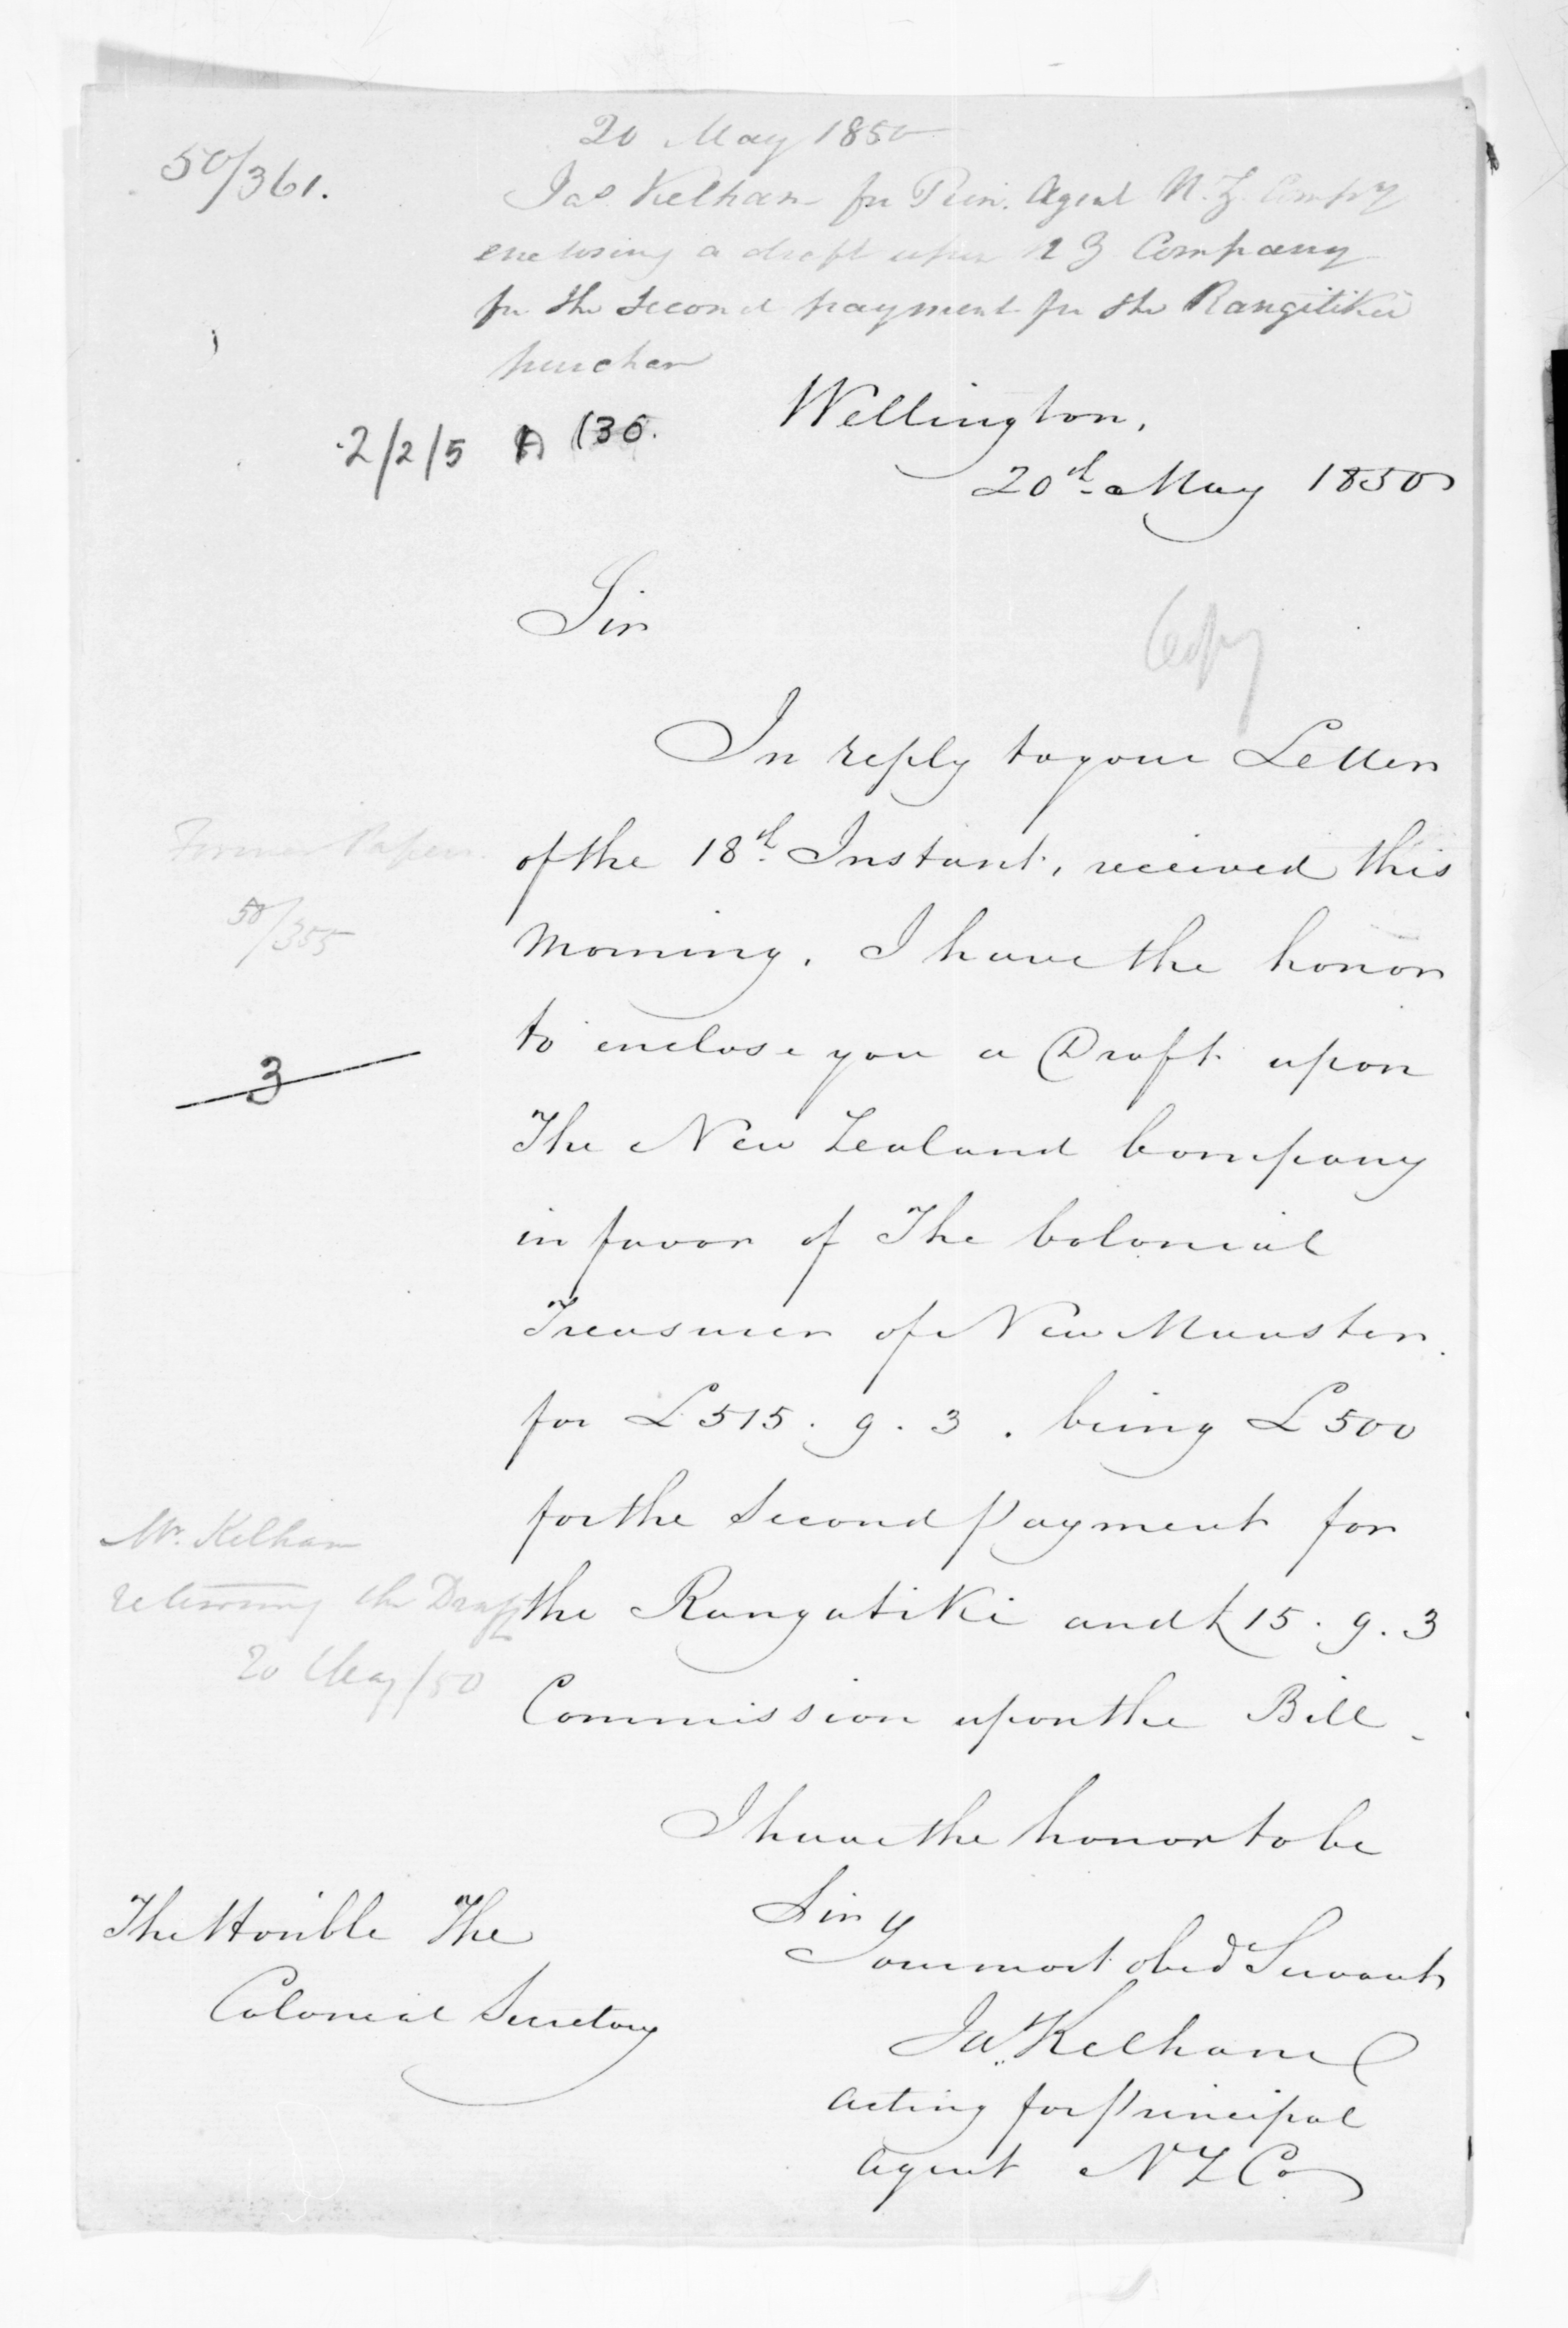 50/361.
20 May 1850
Jas. Kelham for Prin. Agent N.Z. Compy
enclosing a draft upon N Z Company
for the second payment for the Rangitikei
purchase
2/2/5 A 136.
Wellington,
20th May 1850
Sir
Copy
In reply to your Letter
of the 18th Instant, received this
morning, I have the honor
to enclose you a Draft upon
The New Zealand Company
in favor of The Colonial
Treasurer of New Munster
for £515. 9. 3. being £500
for the Second Payment for
the Rangatiki and £15. 9. 3
Commission upon the Bill.
Former Papers
50/355
3
Mr. Kelham
returning the Draft
20 May/50
I have the honor to be
Sir
Your most obed Servant
Jas. Kelham
Acting for Principal
Agent N Z Co
The Honble The
Colonial Secretary